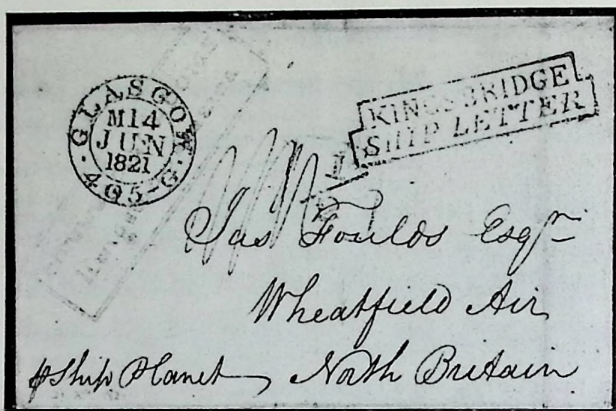 GLASGOW
M14
JUN
1821
405-G
KINGSBRIDGE
SHIP LETTER
Jas Foulds Esqr
Wheatfield Air
North Britain
p Ship Planet